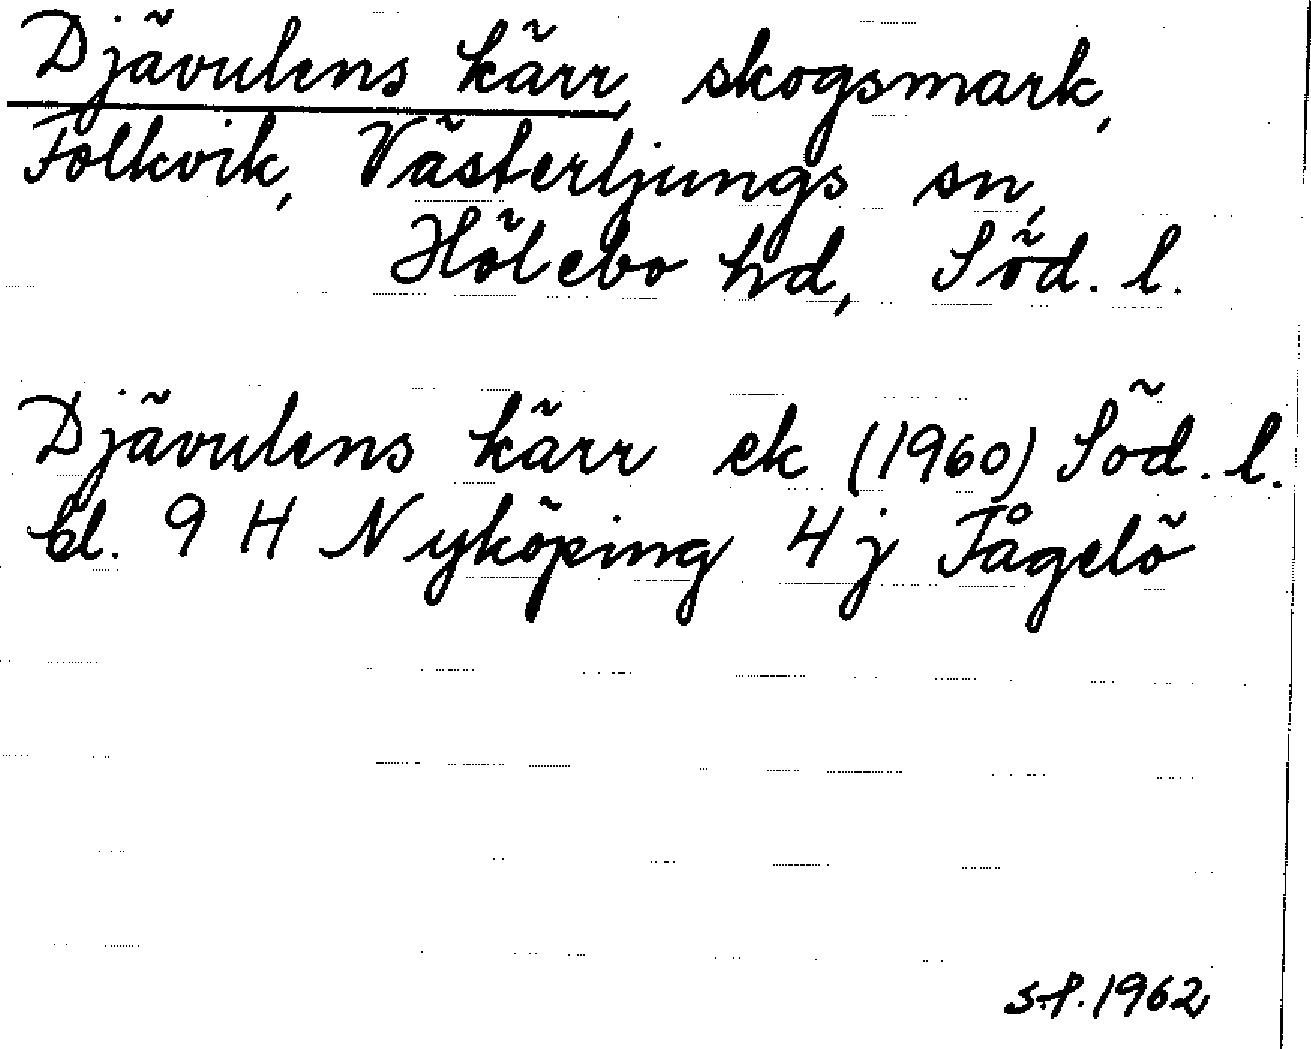 Djävulens kärr, skogsmark,
Folkvik, Västerljungs sn,
Hölebo hd, Söd. l.
Djävulens kärr ek (1960) Söd. l.
bl. 9 H Nyköping 4j Fågelö
S.F. 1962